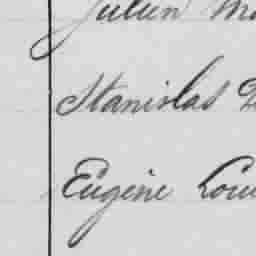 Julien
Stanislas
Eugène Loui